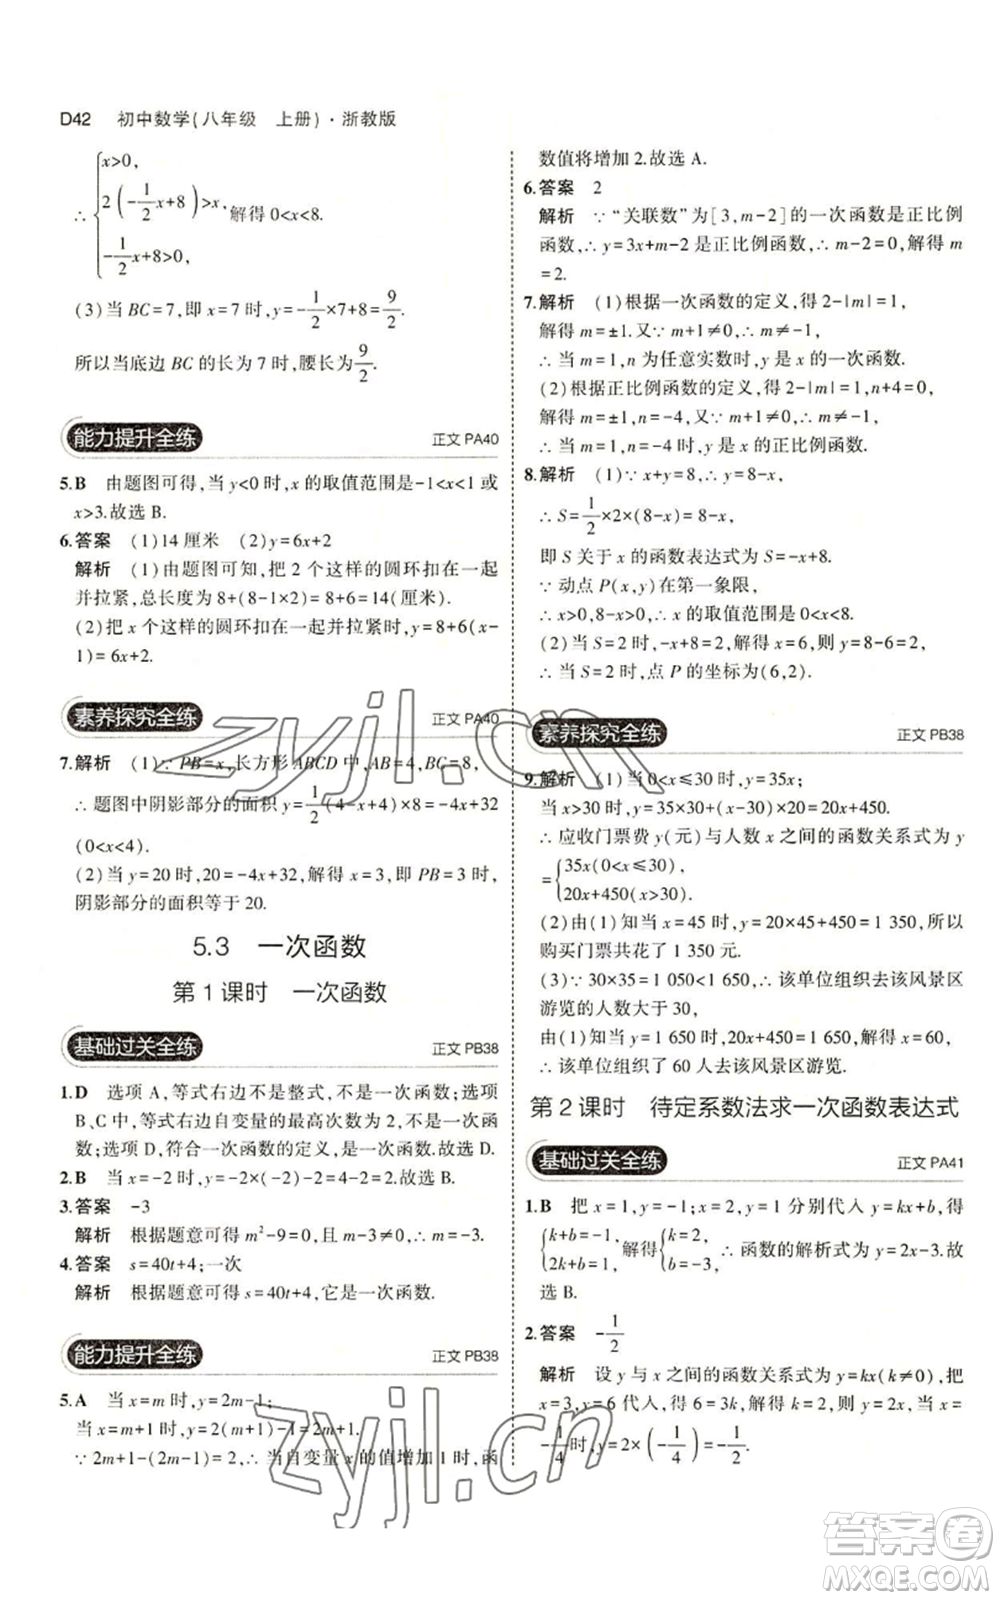 D42 初中数学(八年级 上册)·浙教版
∴ {x>0, 2(-1/2x+8)>x, -1/2x+8>0, 解得 0<x<8.
(3)当 BC=7,即 x=7 时,y=-1/2×7+8=9/2.
所以当底边 BC 的长为 7 时,腰长为9/2.
能力提升全练 正文 PA40
5.B 由题图可得,当 y<0 时,x 的取值范围是-1<x<1 或
x>3.故选 B.
6.答案 (1)14 厘米 (2)y=6x+2
解析 (1)由题图可知,把 2 个这样的圆环扣在一起
并拉紧,总长度为 8+(8-1×2)=8+6=14(厘米).
(2)把 x 个这样的圆环扣在一起并拉紧时,y=8+6(x-
1)=6x+2.
素养探究全练 正文 PA40
7.解析 (1)∵ PB=x,长方形 ABCD 中,AB=4,BC=8,
∴ 题图中阴影部分的面积 y=1/2(4-x+4)×8=-4x+32
(0<x<4).
(2)当 y=20 时,20=-4x+32,解得 x=3,即 PB=3 时,
阴影部分的面积等于 20.
5.3 一次函数
第 1 课时 一次函数
基础过关全练 正文 PB38
1.D 选项 A,等式右边不是整式,不是一次函数;选项
B、C 中,等式右边自变量的最高次数为 2,不是一次函
数;选项 D,符合一次函数的定义,是一次函数.故选 D.
2.B 当 x=-2 时,y=-2×(-2)+3=7.故选 B.
3.答案 -3
解析 根据题意可得 m²-9=0,且 m-3≠0,∴ m=-3.
4.答案 s=40t+4;一次
解析 根据题意可得 s=40t+4,它是一次函数.
能力提升全练 正文 PB38
5.A 当 x=m 时,y=2m-1;
当 x=m+1 时,y=2(m+1)-1=2m+1,
∵ 2m+1-(2m-1)=2,∴ 当自变量 x 的值增加 1 时,函
数值将增加 2.故选 A.
6.答案 2
解析 ∵ “关联数”为[3,m-2]的一次函数是正比例
函数,∴ y=3x+m-2 是正比例函数,∴ m-2=0,解得 m
=2.
7.解析 (1)根据一次函数的定义,得 2-|m|=1,
解得 m=±1.又∵ m+1≠0,∴ m≠-1,
∴ 当 m=1,n 为任意实数时,y 是 x 的一次函数.
(2)根据正比例函数的定义,得 2-|m|=1,n+4=0,
解得 m=±1,n=-4,又∵ m+1≠0,∴ m≠-1,
∴ 当 m=1,n=-4 时,y 是 x 的正比例函数.
8.解析 (1)∵ x+y=8,∴ y=8-x,
∴ S=1/2×2×(8-x)=8-x,
即 S 关于 x 的函数表达式为 S=-x+8.
∵ 动点 P(x,y)在第一象限,
∴ x>0,8-x>0,∴ x 的取值范围是 0<x<8.
(2)当 S=2 时,-x+8=2,解得 x=6,则 y=8-6=2,
∴ 当 S=2 时,点 P 的坐标为(6,2).
素养探究全练 正文 PB38
9.解析 (1)当 0<x≤30 时,y=35x;
当 x>30 时,y=35×30+(x-30)×20=20x+450.
∴ 应收门票费 y(元)与人数 x 之间的函数关系式为 y
={35x(0<x≤30), 20x+450(x>30).
(2)由(1)知当 x=45 时,y=20×45+450=1 350,所以
购买门票共花了 1 350 元.
(3)∵ 30×35=1 050<1 650,∴ 该单位组织去该风景区
游览的人数大于 30,
由(1)知当 y=1 650 时,20x+450=1 650,解得 x=60.
∴ 该单位组织了 60 人去该风景区游览.
第 2 课时 待定系数法求一次函数表达式
基础过关全练 正文 PA41
1.B 把 x=1,y=-1;x=2,y=1 分别代入 y=kx+b,得
{k+b=-1, 2k+b=1, 解得{k=2, b=-3, ∴ 函数的解析式为 y=2x-3.故
选 B.
2.答案 -1/2
解析 设 y 与 x 之间的函数关系式为 y=kx(k≠0),把
x=3,y=6 代入,得 6=3k,解得 k=2,∴ y=2x,当 x=
-1/4时,y=2×(-1/4)=-1/2.
zyjl.cn
zyjl.cn
答案圈
MXQE.COM